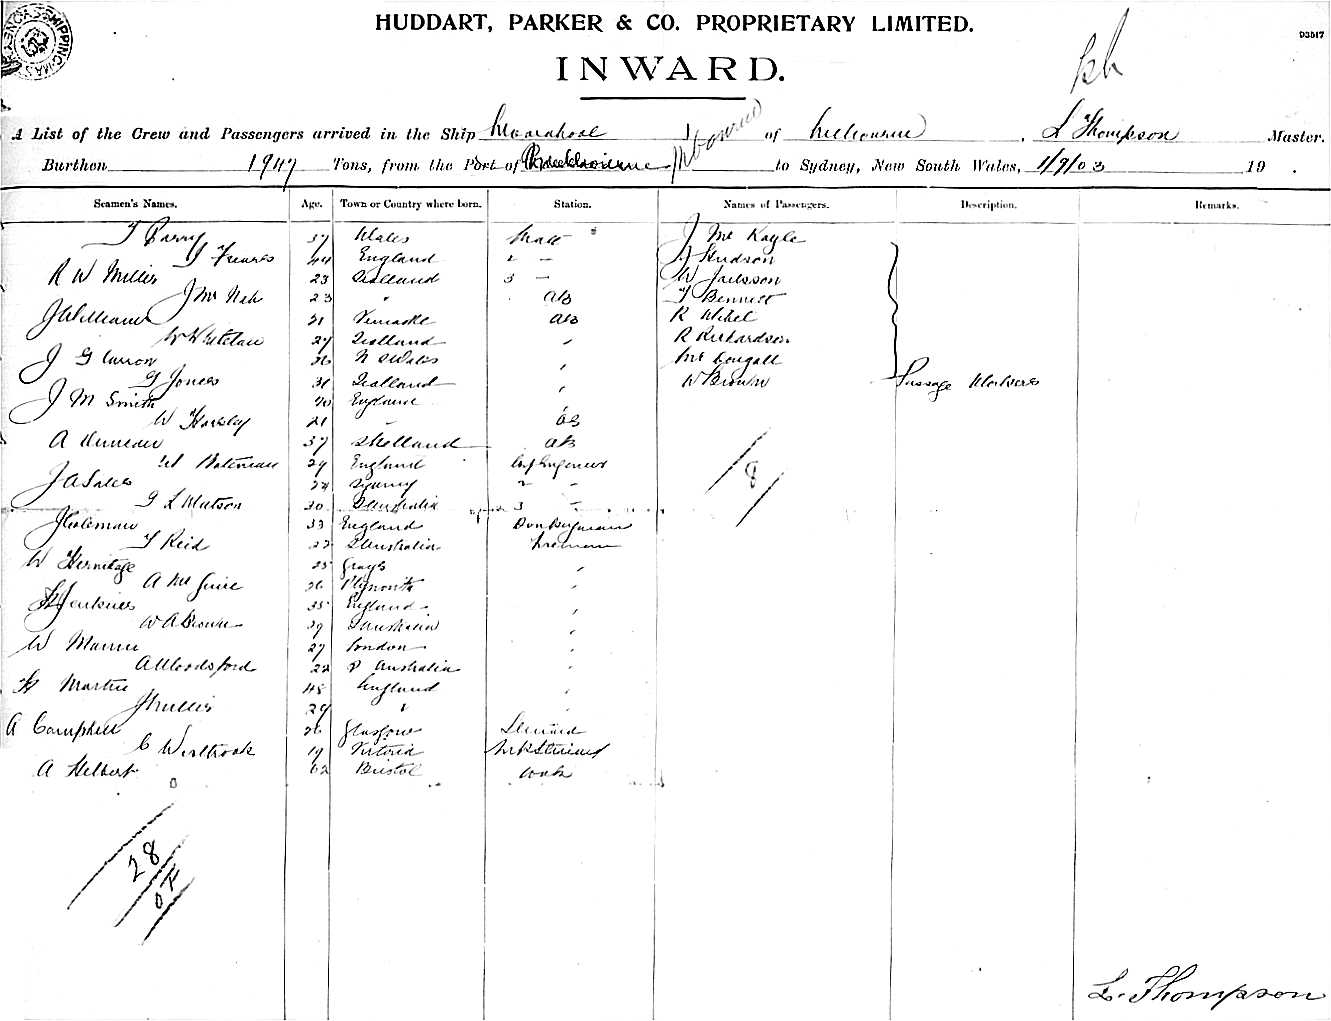 HUDDART, PARKER & CO. PROPRIETARY LIMITED.
93517
INWARD.
A List of the Crew and Passengers arrived in the Ship of Melbourne, L Thompson Master.
Burthen 1947 Tons, from the Port of Melbourne to Sydney, New South Wales, 1/9/03 19 .
Seamen's Names. Age. Town or Country where born. Station. Names of Passengers. Description. Remarks.
T Parry 37 Wales Mate J Mc Kayle
44 England 2 — Hudson
R W Millis 23 Scotland 3 — W
J Mc Nab 23 " AB T Bennett
J Williams 21 AB R
29 Scotland " R Richardson
J G 36 N S Wales " Mc Dougall
G Jones 31 Scotland " W Brown Passage Workers
J M Smith 20 England
W 21 " AB
A 37 Shetland AB
W Bateman 29 England Chf Engineer 8
J A Sales 24 Sydney 2 "
G L Watson 30 S Australia 3 "
J Coleman 33 England Donkeyman
T Reid 22 S Australia Fireman
W Hermitage 25 Grays "
A Mc Guire 26 Plymouth "
H Jenkins 35 England "
W A Brown 29 S Australia "
W 27 London "
A Woodsford 22 S Australia "
H Martin 45 England "
29 " "
A Campbell 26 Glasgow Steward
C Westbrook 19 Victoria
A Helbert 62 Bristol Cook
28
L. Thompson